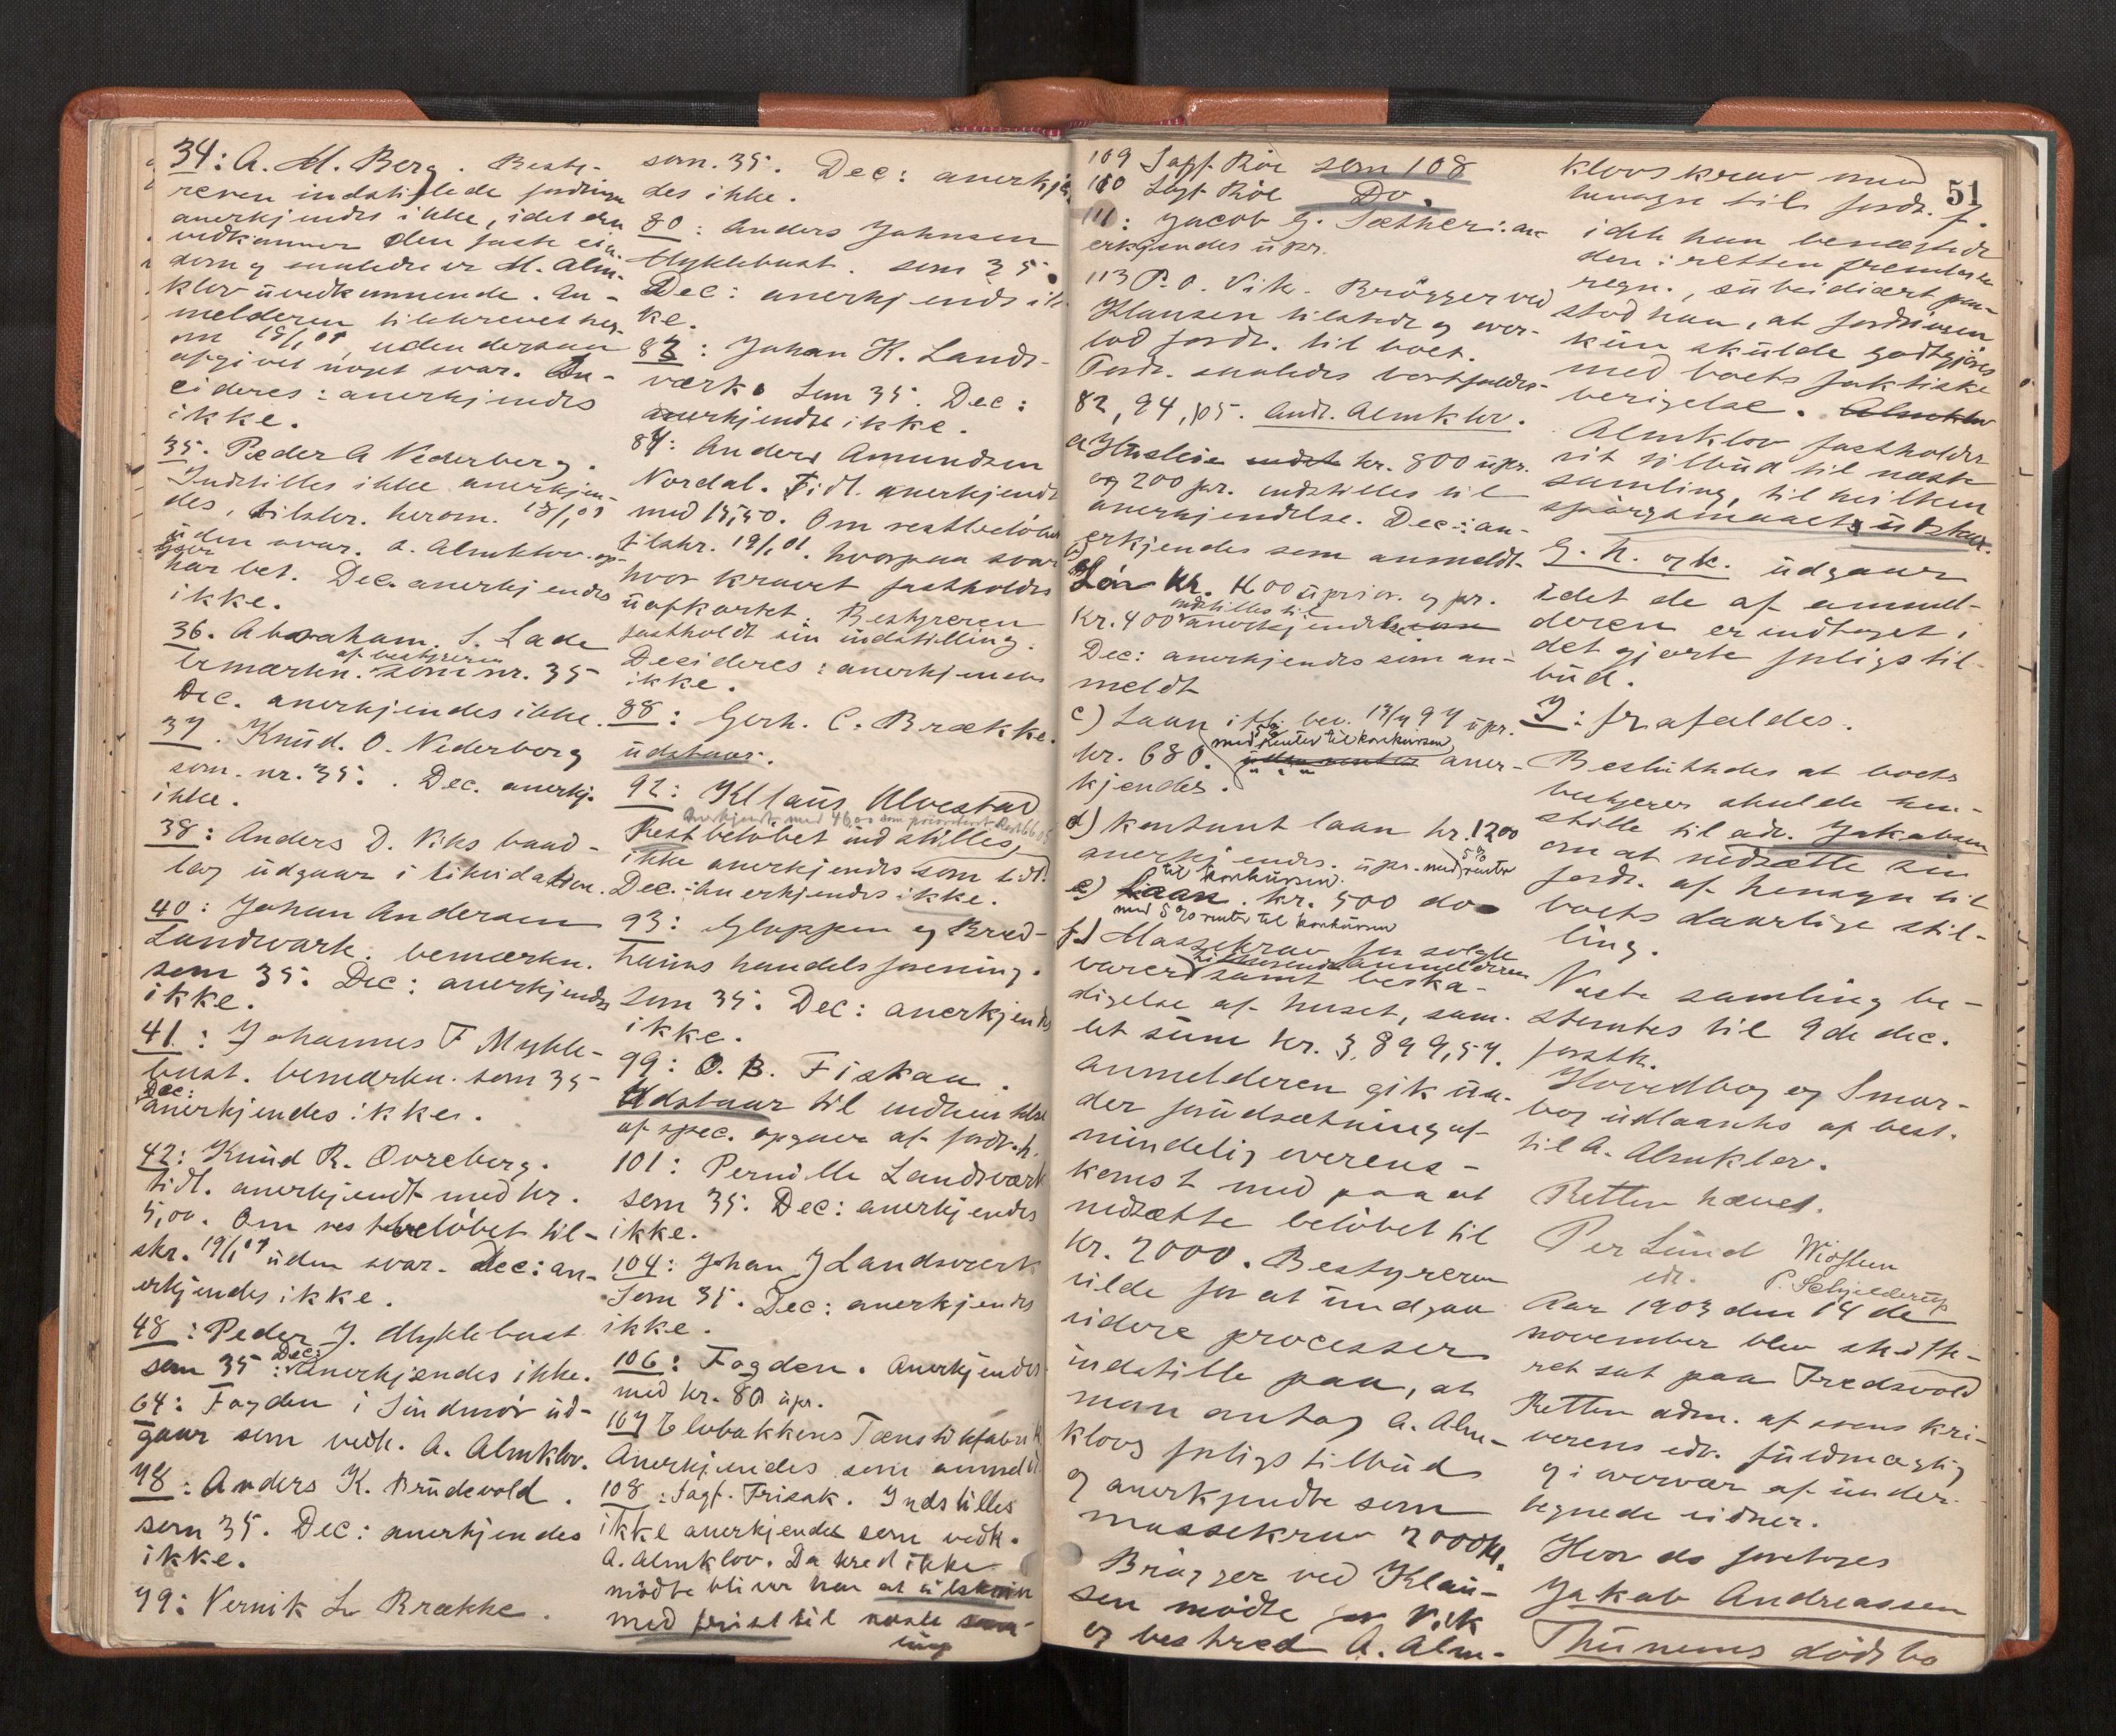 34: A. M. Berg. Besty-
reren indstillede fordringen
anerkjendes ikke, idet den
vedkommer den faste eien-
dom og saaledes er M. Alm-
klov uvedkommende. An-
melderen tilskrevet her-
om 19/1 01, uden dersaa
afgivet noget svar. De-
cideres: anerkjendes
ikke.
35. Peder A Nederberg.
Indstilles ikke anerkjen-
des, tilskr. herom. 19/1 01
uden svar. A. Almklov op-
gjør
har bet. Dec. anerkjendes
ikke.
36. Abraham. S. Lade
af bestyreren
bemærkn. som nr. 35
Dec. anerkjendes ikke.
37. Knud. O. Nederberg
som nr. 35. Dec. anerkj.
ikke.
38: Anders D. Viks baad-
lag udgaar i likvidation.
40: Johan Andersen
Landværk. bemærkn.
som 35. Dec: anerkjendes
ikke.
41: Johannes F Mykle-
bust. bemærkn. som 35-
Dec:
anerkjendes ikke.
42: Knud R. Ovreberg.
tidl. anerkjendt med kr.
5,00. Om restbeløbet til-
skr. 19/1 01 uden svar. Dec: an-
erkjendes ikke.
48: Peder J. Myklebust
som 35 : Dec: anerkjendes ikke.
64: Fogden i Søndmør ud-
gaar som vedk. A. Almklov.
78: Anders K. Brudevold.
som 35. Dec: anerkjendes
ikke.
79: Vernik L. Brække.
som. 35. Dec: anerkjen
des ikke.
80: Anders Johnsen
Myklebust. som 35.
Dec: anerkjendes ik-
ke.
83: Johan K. Lands-
værk. Som 35. Dec:
anerkjendes ikke.
87: Anders Amundsen
Nordal. Tidl. anerkjendt
med 15,50. Om restbeløbet
tilskr. 19/1 01. hvorpaa svar
hvor kravet fastholdes
uafkortet. Bestyreren
fastholdt sin indstilling.
Decideres: anerkjendes
ikke.
88: Gerh. C. Brække.
udstaar.
92: Klaus Alvestad
Anerkjendt med 46,00 som prioriteret
Restbeløbet indstilles,
ikke anerkjendes som tidl.
Dec.: anerkjendes ikke.
93: Gloppen og Bred-
heims handelsforening.
Som 35. Dec: anerkjendes
ikke.
99: O. B. Fiskaa.
Udstaar til indhentelse
af spec. opgave af fordr. h.
101: Pernille Landsværk
som 35. Dec: anerkjendes
ikke.
104: Johan J Landsværk
Som 35. Dec: anerkjendes
ikke.
106: Fogden. Anerkjendes
med kr. 80 upr.
107 Elvebakkens Tænstikfabrik
Anerkjendes som anmeldt
108: Sagf. Frisak. Indstilles
ikke anerkjendes som vedk.
A. Almklov. Da kred ikke
mødte bliver han at tilskrive
med frist til næste sam-
ling
51
109 Sagf. Röe som 108
110 Sagf. Röe Do.
111: Jacob G. Sæther: an-
erkjendes upr.
113 P. O. Vik. Brögger ved
Klausen tilstede og over-
lod fordr. til boet.
Fordr. saaledes bortfaldes-
82, 94, 105. Andr. Almklov.
a) Husleie kr. 800 upr.
og 200 pr. indstilles til
anerkjendelse. Dec: an-
erkjendes som anmeldt.
b) Løn kr. 400 uprior. og pr.
indstilles til
kr. 400 anerkjendelse
Dec: anerkjendes som an-
meldt
c) Laan ifl. bev. 13/9 97 upr.
med 5% renter til konkursen
kr. 680. aner-
kjendes.
d) kontant laan kr. 1200
anerkjendes. upr. med 5% renter
til konkursen.
e) Laan. kr. 500 do
med 5% renter til konkursen
f.) Massekrav for solgte
tilhørende anmelderen
varer samt beska-
digelse af huset, sam-
let sum kr. 3,899,57.
Anmelderen gik un-
der forudsætning af
mindelig overens-
komst med paa at
nedsætte beløbet til
kr. 2000. Bestyreren
vilde for at undgaa
videre processer
indstille paa, at
man antog A. Alm-
klovs forligstilbud
og anerkjendte som
massekrav 2000 kr.
Brögger ved Klau-
sen mødte for Vik
og bestred A. Alm-
klovs krav med
hensyn til fordr. f.
idet han benægtede
den i retten fremlagte
regn., subsidiært paa-
stod han, at fordringen
kun skulde godtgjøres
med boets faktiske
berigelse. Almklov
Almklov fastholdes
sit tilbud til næste
samling, til hvilken
spørgsmaalet udstaar.
G. h. og k. udgaar
idet de af anmel-
deren er indtaget i
det gjorte forligstil-
bud.
I: frafaldes.
Besluttedes at boets
bestyrer skulde hen-
stille til adv. Jakobsen
om at nedsætte sin
fordr. af hensyn til
boets daarlige stil-
ling.
Næste samling be-
stemtes til 9de dec.
førstk.
Hovedbog og Smør-
bog udlaantes af best.
til A. Almklov.
Retten hævet.
Per Lund
edr.
P. Schjelderup
Aar 1903 den 14 de
november blev skifte-
ret sat paa Fredsvold
Retten adm. af sorenskri-
verens edv. fuldmægtig
og i overvær af under-
tegnede vidner.
Hvor da foretoges
Jakob Andreassen
Thunems dødsbo